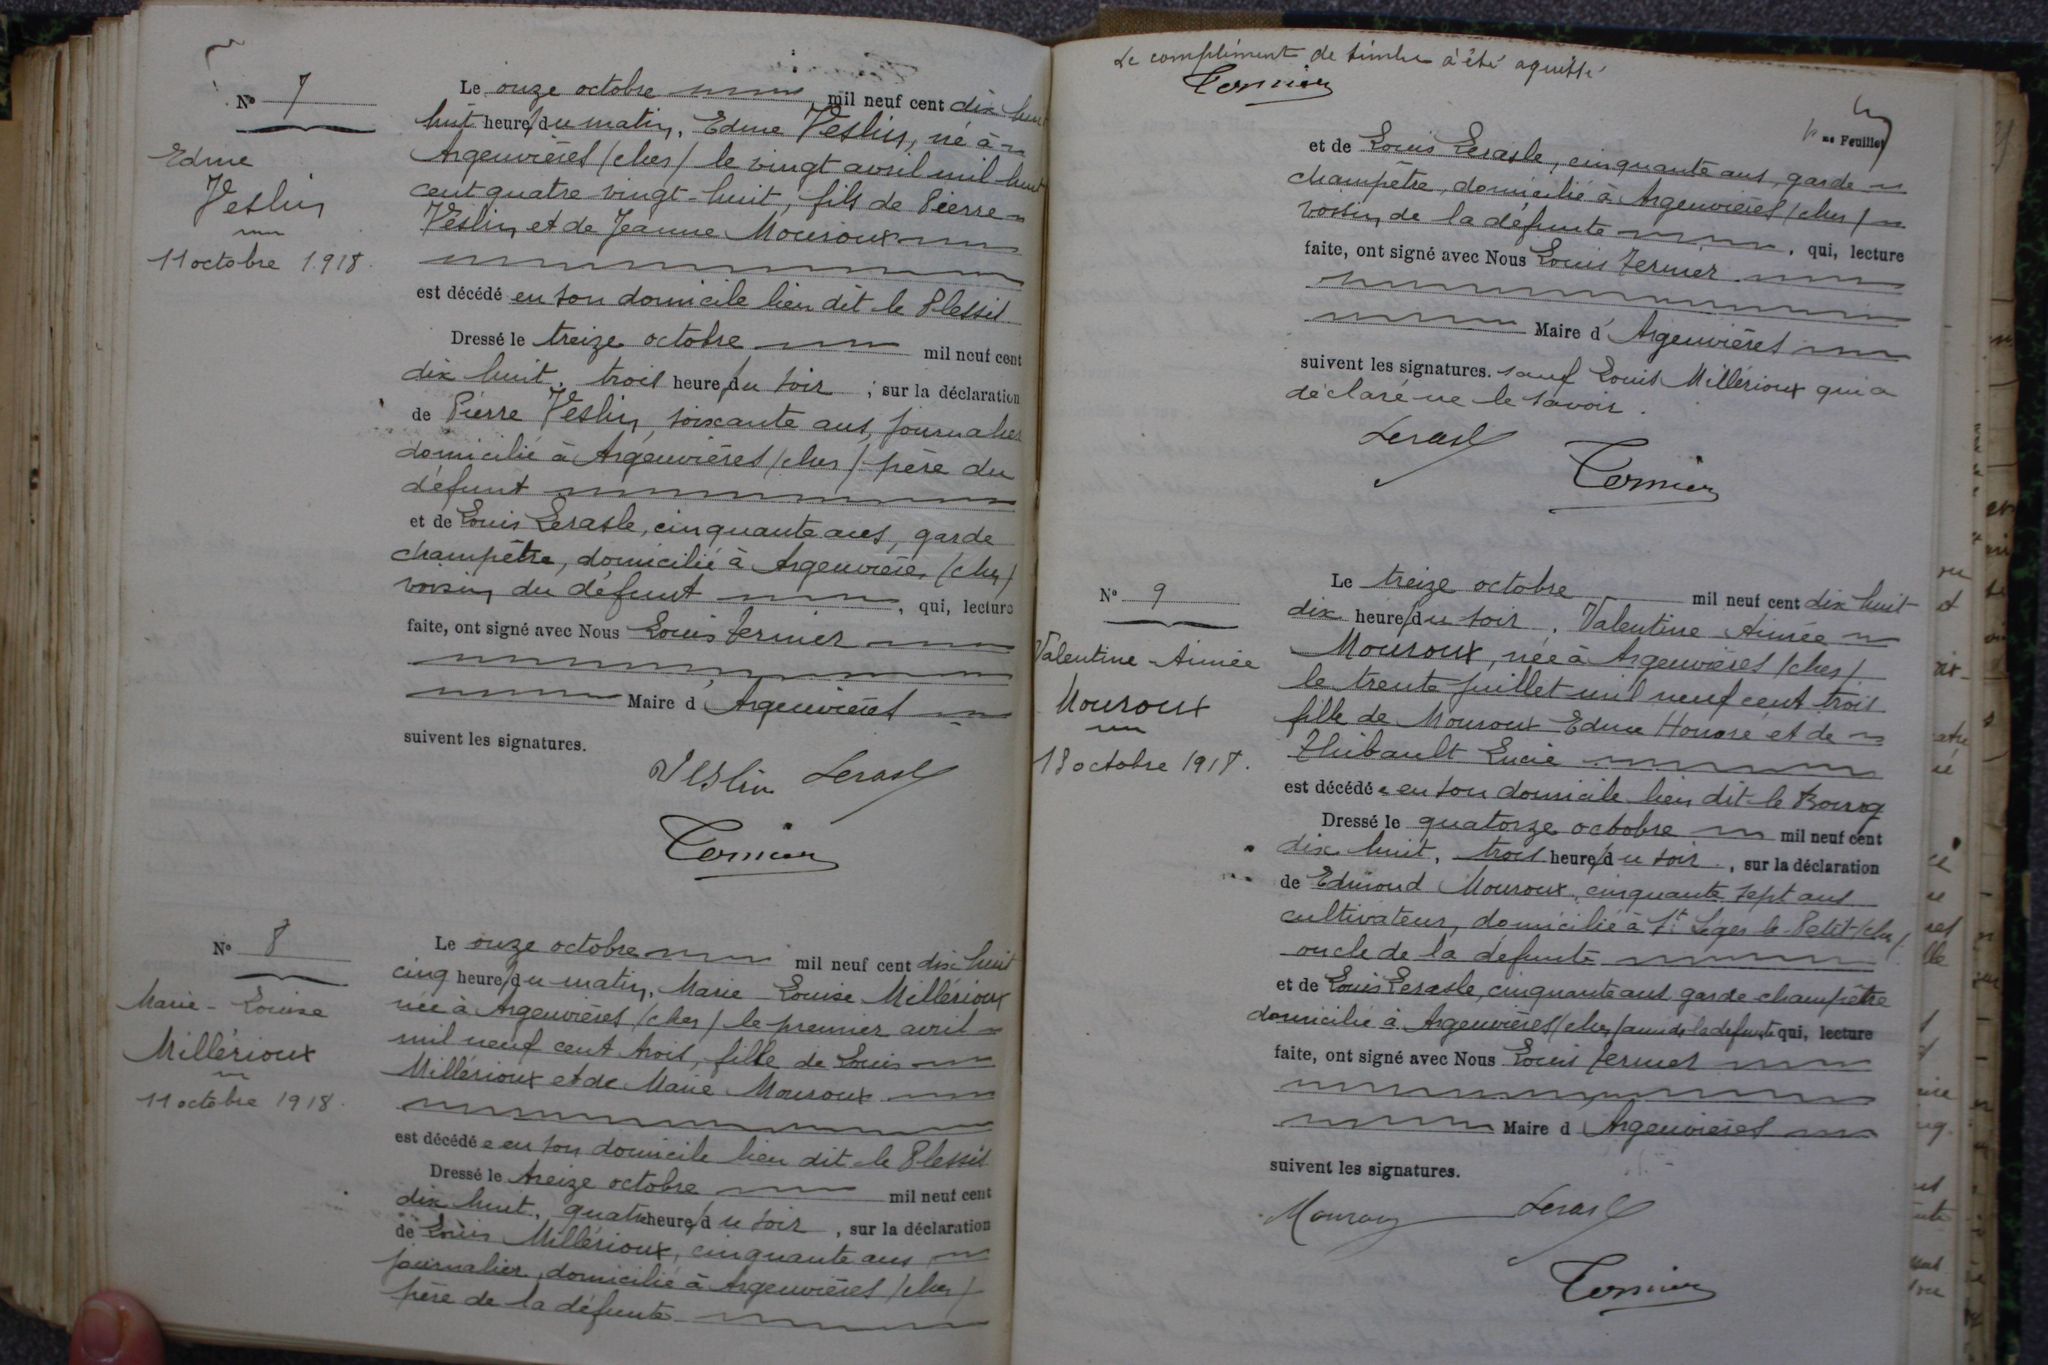 N° 7
Edme
Veslin
11 octobre 1918.
Le onze octobre mil neuf cent dix huit
huit heures du matin, Edme Veslin, né à
Argenvières (cher) le vingt avril mil huit
cent quatre vingt-huit, fils de Pierre
Veslin et de Jeanne Mouroux
est décédé en son domicile lieu dit le Plessis
Dressé le treize octobre mil neuf cent
dix huit, trois heures du soir ; sur la déclaration
de Pierre Veslin, soixante ans, journalier
domicilié à Argenvières (cher) père du
défunt
et de Louis Lerasle, cinquante ans, garde
champêtre, domicilié à Argenvières (cher)
voisin du défunt , qui, lecture
faite, ont signé avec Nous Louis Ternier
Maire d'Argenvières
suivent les signatures.
Veslin Lerasle
Ternier
N° 8
Marie-Louise
Millérioux
11 octobre 1918.
Le onze octobre mil neuf cent dix huit
cinq heures du matin, Marie Louise Millérioux
née à Argenvières (cher) le premier avril
mil neuf cent trois, fille de Louis
Millérioux et de Marie Mouroux
est décédée en son domicile lieu dit le Plessis
Dressé le treize octobre mil neuf cent
dix huit, quatre heures du soir , sur la déclaration
de Louis Millérioux, cinquante ans
journalier, domicilié à Argenvières (cher)
père de la défunte
Le complément de timbre à été aquitté
Ternier
me Feuillet
et de Louis Lerasle, cinquante ans, garde
champêtre, domicilié à Argenvières (cher)
voisin de la défunte , qui, lecture
faite, ont signé avec Nous Louis Ternier
Maire d'Argenvières
suivent les signatures. sauf Louis Millérioux qui a
déclaré ne le savoir.
Lerasle
Ternier
N° 9
Valentine-Aimée
Mouroux
13 octobre 1918.
Le treize octobre mil neuf cent dix huit
dix heures du soir , Valentine Aimée
Mouroux, née à Argenvières (cher)
le trente juillet mil neuf cent trois
fille de Mouroux Edme Honoré et de
Thibault Lucie
est décédée en son domicile lieu dit le Bourg
Dressé le quatorze octobre mil neuf cent
dix huit, trois heures du soir , sur la déclaration
de Edmond Mouroux, cinquante sept ans
cultivateur, domicilié à St Léger le Petit (cher)
oncle de la défunte
et de Louis Lerasle, cinquante ans garde-champêtre
domicilié à Argenvières (cher) ami de la défunte qui, lecture
faite, ont signé avec Nous Louis Ternier
Maire d'Argenvières
suivent les signatures.
Mouroux Lerasle
Ternier